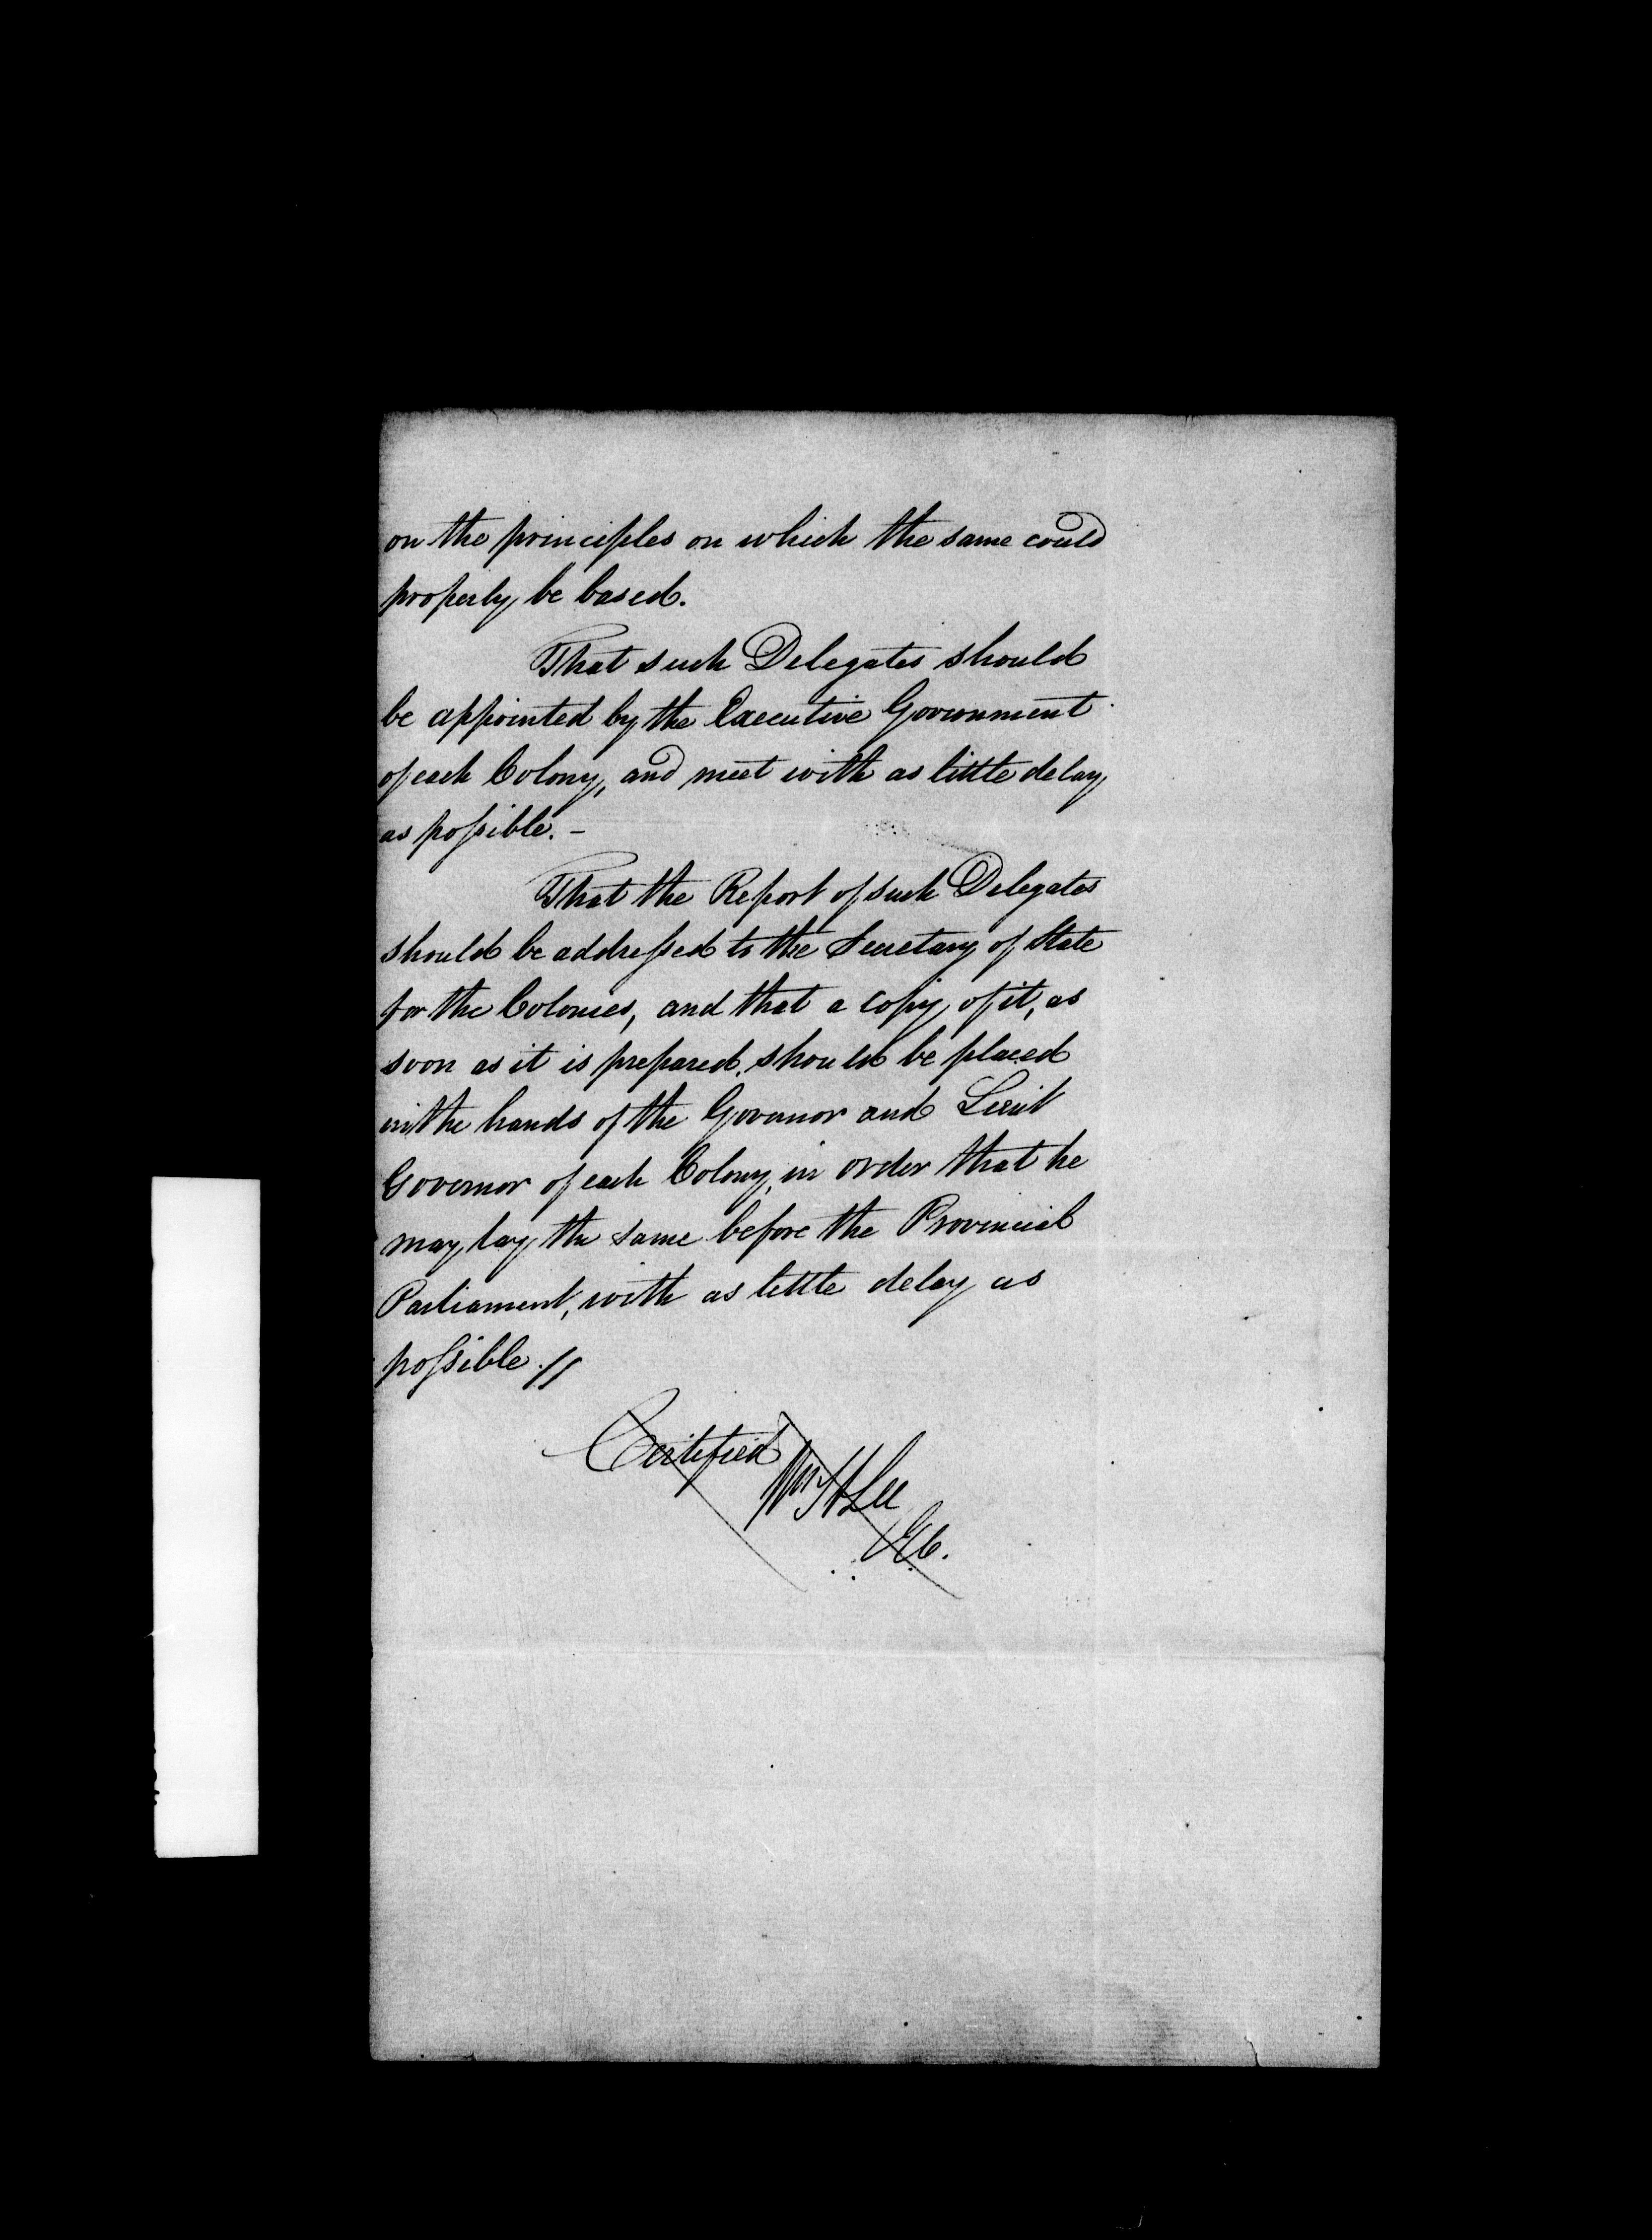 on the principles on which the same could
properly be based.
That such Delegates should
be appointed by the Executive Government
of each Colony, and meet with as little delay
as possible. -
That the Report of such Delegates
should be addressed to the Secretary of State
for the Colonies, and that a copy of it, as
soon as it is prepared, should be placed
in the hands of the Governor and Lieut
Governor of each Colony, in order that he
may lay the same before the Provincial
Parliament, with as little delay as
possible.//
Certified
Wm H Lee